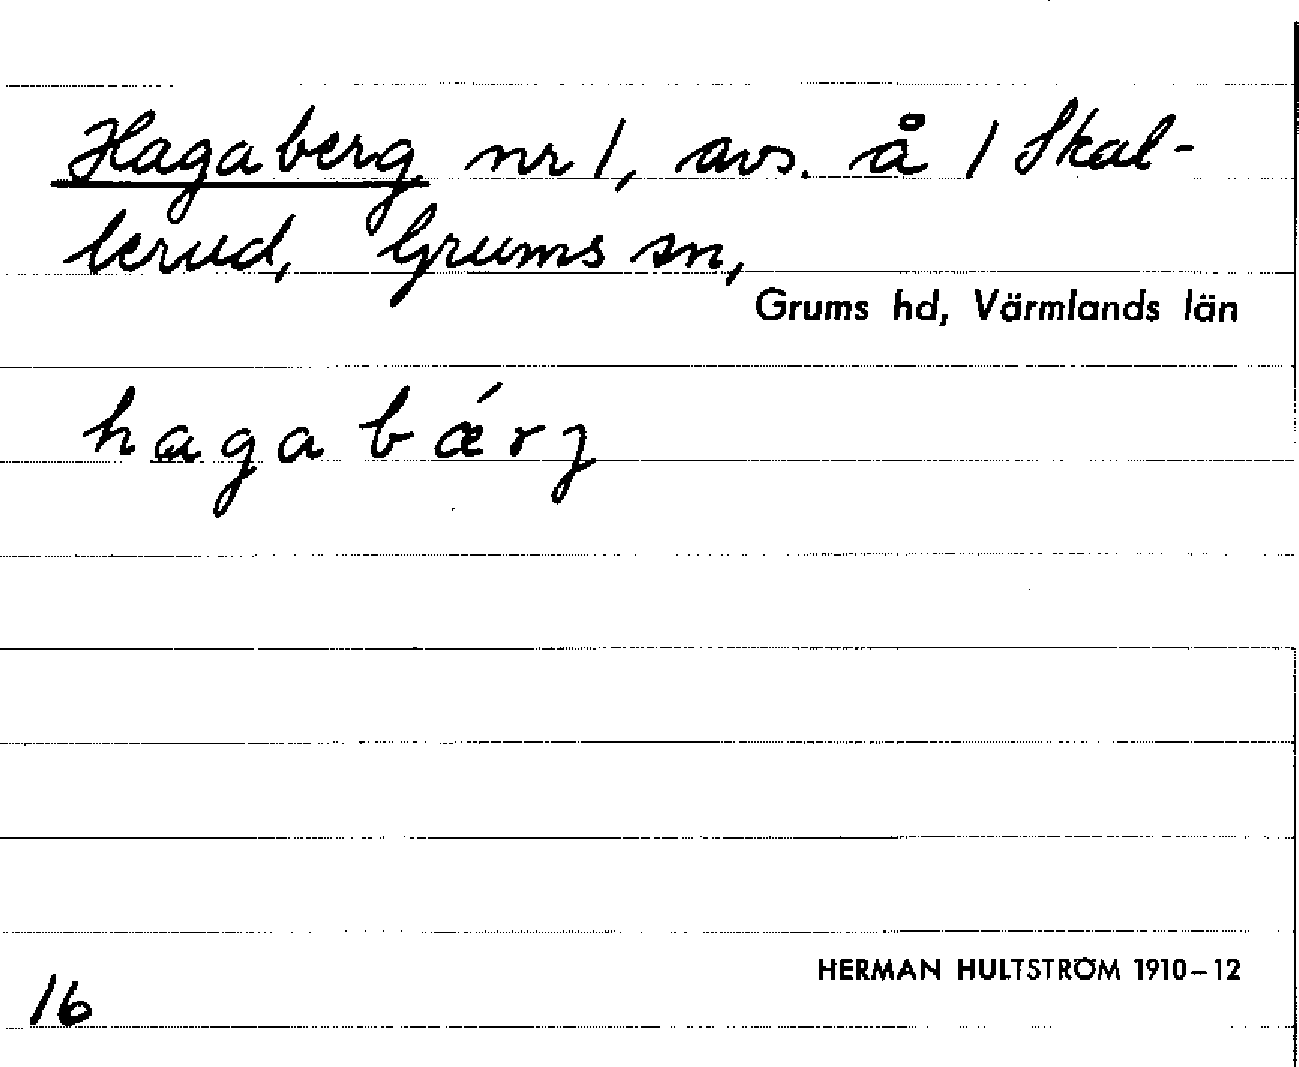 Hagaberg nr 1, avs. å 1 Skal-
lerud, Grums sn,
Grums hd, Värmlands län
hagabǽrȷ
HERMAN HULTSTRÖM 1910–12
16